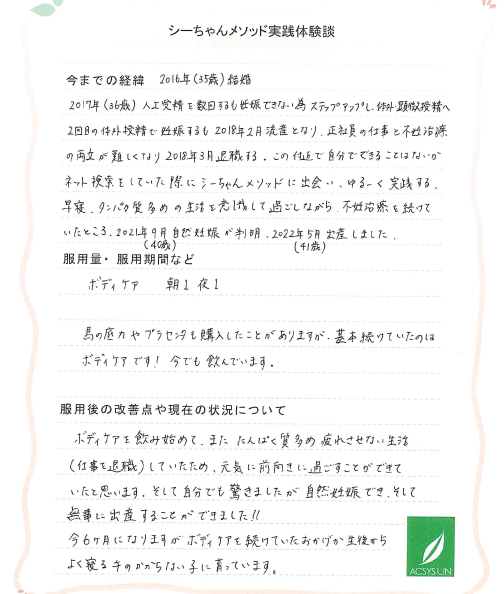 シーちゃんメソッド実践体験談
今までの経緯 2016年(35歳)結婚
2017年(36歳)人工受精を数回するも妊娠できない為 ステップアップし、体外顕微授精へ
2回目の体外授精で妊娠するも2018年2月流産となり、正社員の仕事と不妊治療
の両立が難しくなり2018年3月退職する。この付近で自分でできることはないか
ネット検索をしていた際にシーちゃんメソッドに出会い、ゆるーく実践する。
早寝、タンパク質多めの生活を意識して過ごしながら、不妊治療を続けて
いたところ、2021年9月自然妊娠が判明、2022年5月出産しました。
(40歳) (41歳)
服用量・服用期間など
ボディケア 朝1 夜1
馬の底力やプラセンタも購入したことがありますが、基本続けていたのは
ボディケアです!今でも飲んでいます。
服用後の改善点や現在の状況について
ボディケアを飲み始めて、また たんぱく質多め 疲れさせない生活
(仕事を退職)していたため、元気に前向きに過ごすことができて
いたと思います。そして自分でも驚きましたが自然妊娠でき、そして
無事に出産することができました!!
今6ヶ月になりますがボディケアを続けていたおかげか生後から
よく寝る手のかからない子に育っています。
ACSYSUN